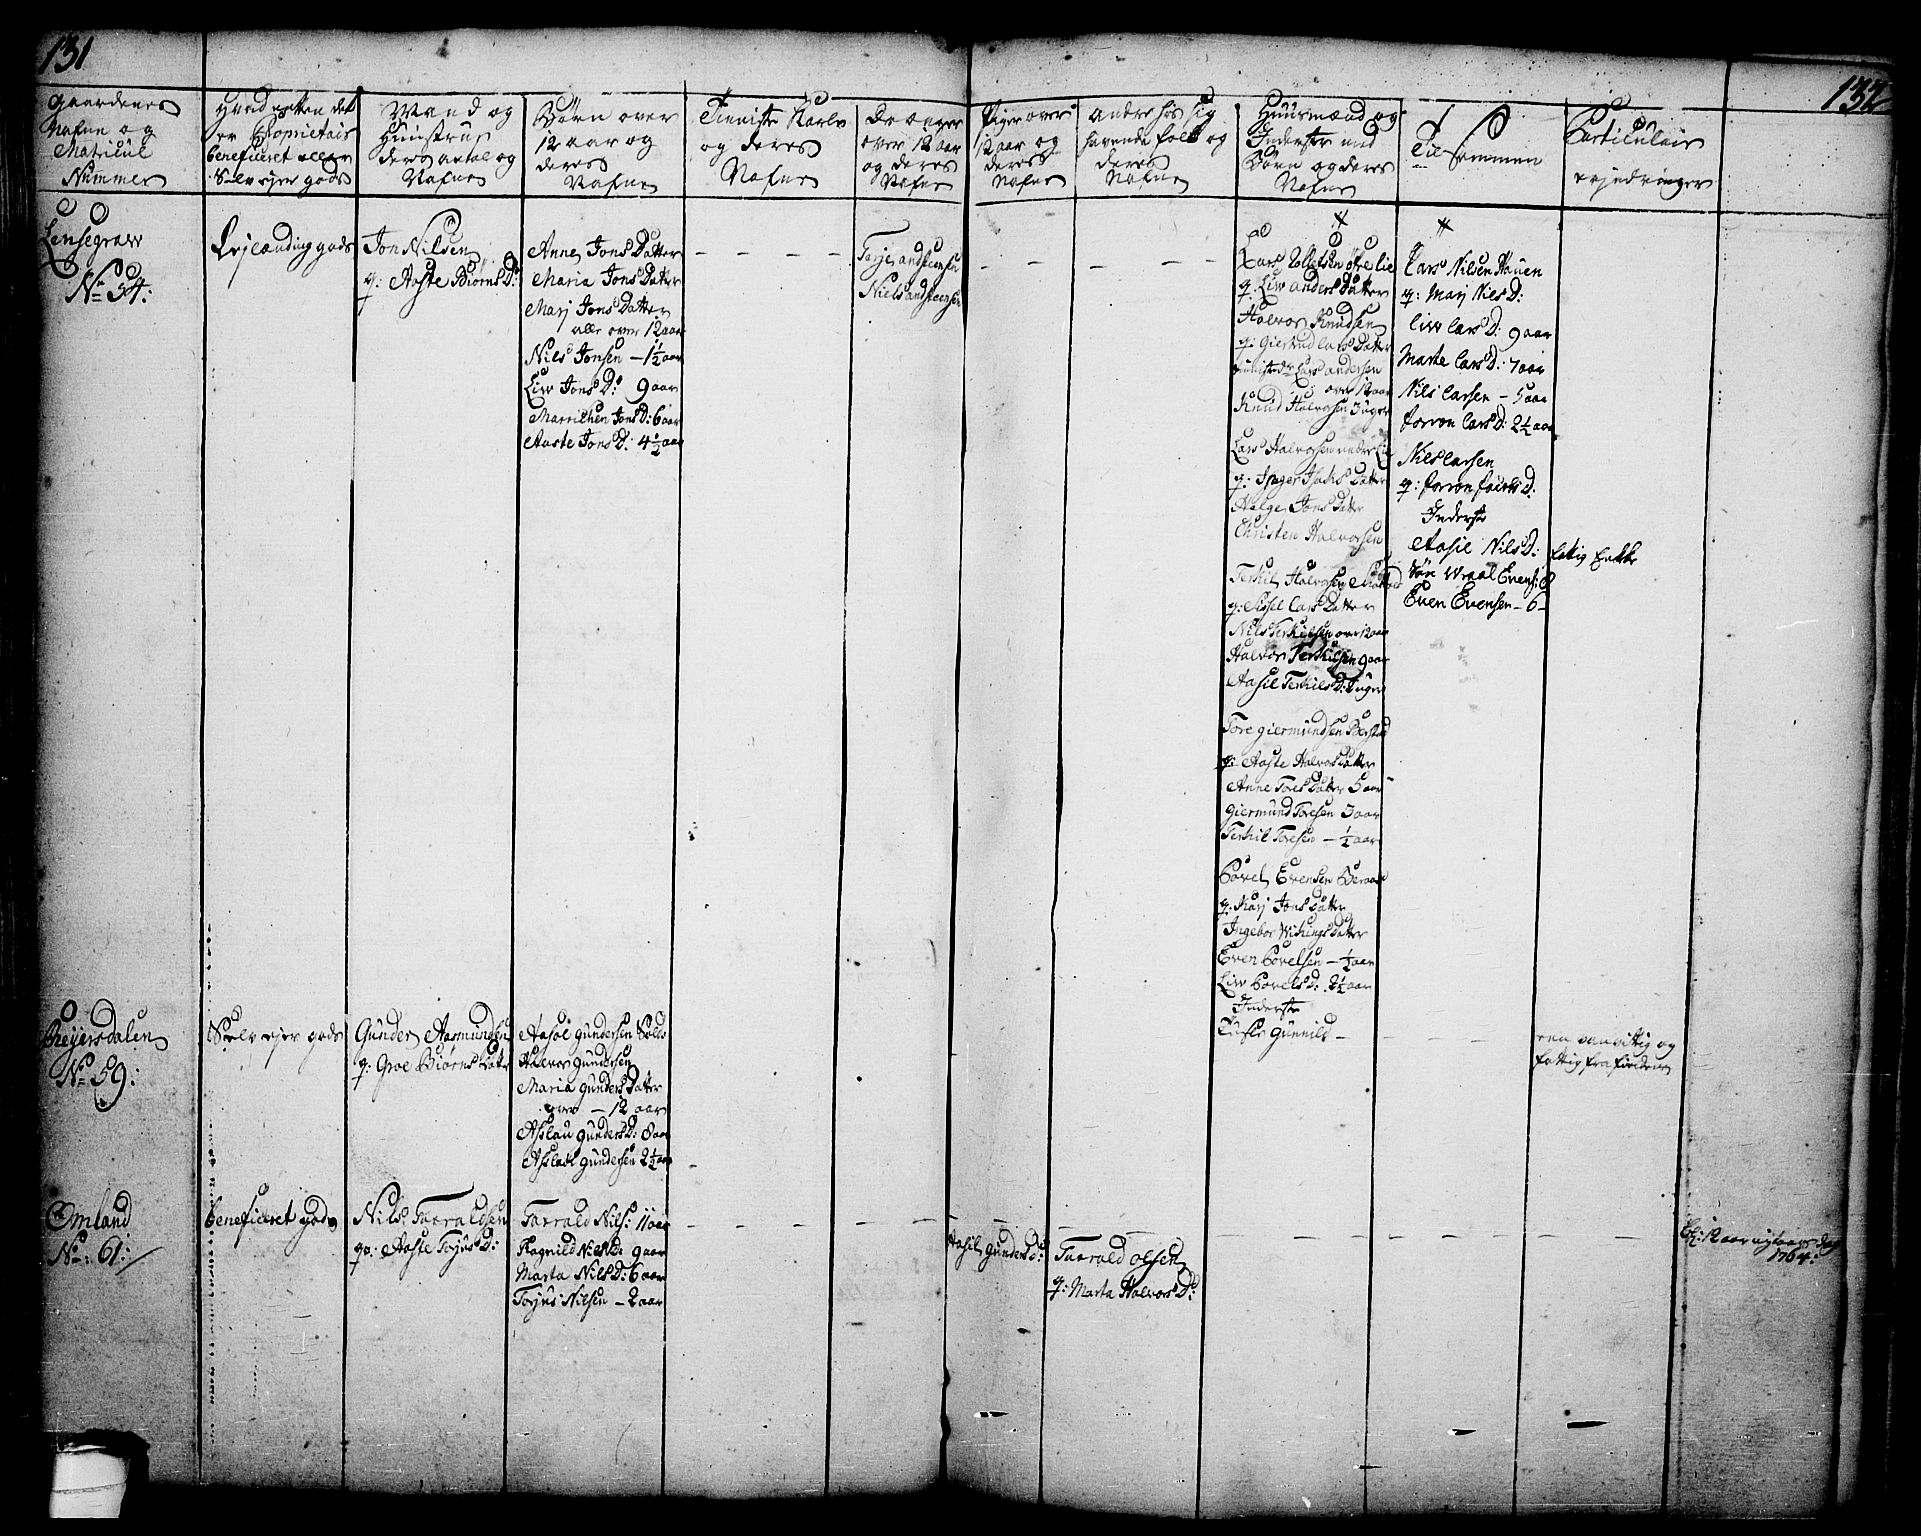 131
132
Gaardenes
Nafne og
Matricul
Nummer
det
er Proprietair
beneficeret eller
Selv ejer gods
Mand og
Hustrue
deres antal og
Nafne
Børn over
12 aar og
deres
Nafne
Tienniste Karle
og deres
Nafne
Drenger
over 12 aar
og deres
Nafne
Piger over
12 aar og
deres
Nafne
Andre hos sig
havende folk og
deres
Nafne
Huusmænd og
Inderster med
Børn og deres
Nafne
Til Sammen
Particulair
Lensegrav
No 54:
Lejlændings gods
Jon Nilsen
q: Aaste Biørns D:
Anne Jons Datter
Maria Jons Datter
Marj Jons Datter
alle over 12 aar
Nils Jonsen - 1½ aar
Liv Jons D: 9 aar
Marrichen Jons D: 6 aar
Aaste Jons D: 4½ aar
Tarje andstensen
Niels andstensen
Lars Tollefsen øvre lie
q. Liv anders Datter
Halvor Knudsen
q. Giertrud Lars Datter
Lars Andersen
over 12 aar
Knud Halvorsen 3 uger
Lars Halvorsen nedre Lie
q: Isachs Datter
Helge Jons Datter
Christen Halvorsen
Terkil Halvorsen
q: Sissel Lars Datter
Nils Terkilsen over 12 aar
Halvor Terkilsen 9 aar
Aasil Terkils D: uger
Tore Giermundsen
q: Aaste Halvors Datter
Anne Tores Datter 5 aar
Giermund Toresen 3 aar
Terkil Toresen - ½ aar
Povel Evensen
q: Marj Jons Datter
Ingebor Wikings Datter
Even Povelsen - ½ aar
Liv Povels D: 2½ aar
Inderste
Gunnild -
Lars Nilsen Hauen
q: Marj Niels D:
Liv Lars D: 9 aar
Marte Lars D: 7 aar
Nils Larsen - 5 aar
Torron Lars D: 2½ aar
Niels Larsen
q: Torron D:
Inderste
Aasil Nils D:
Søn Wraal Evens: 8
Even Evensen - 6 -
fattig Enke
Bejersdalen
No 59:
Selv ejer gods
Gunder Aasmundsen
q: Groe Biørns Datter
Aasol Gundersen
Halvor Gundersen
Maria Gunders Datter
over - 12 aar
Aslau Gunders D: 8 aar
Aslach Gundersen 2½ aar
een vanvittig og
fattig fra
Omland
No: 61:
beneficeret gods
Nils Tarraldsen
q: Aaste Torjus D:
Tarrald Nils: 11 aar
Ragnild Niels D: 9 aar
Marta Nils D: 6 aar
Torjus Nilsen - 2 aar
Aasil Gunders D:
Tarrald Olsen
q: Marta Halvors D:
12 aar nytaars dag
1764: